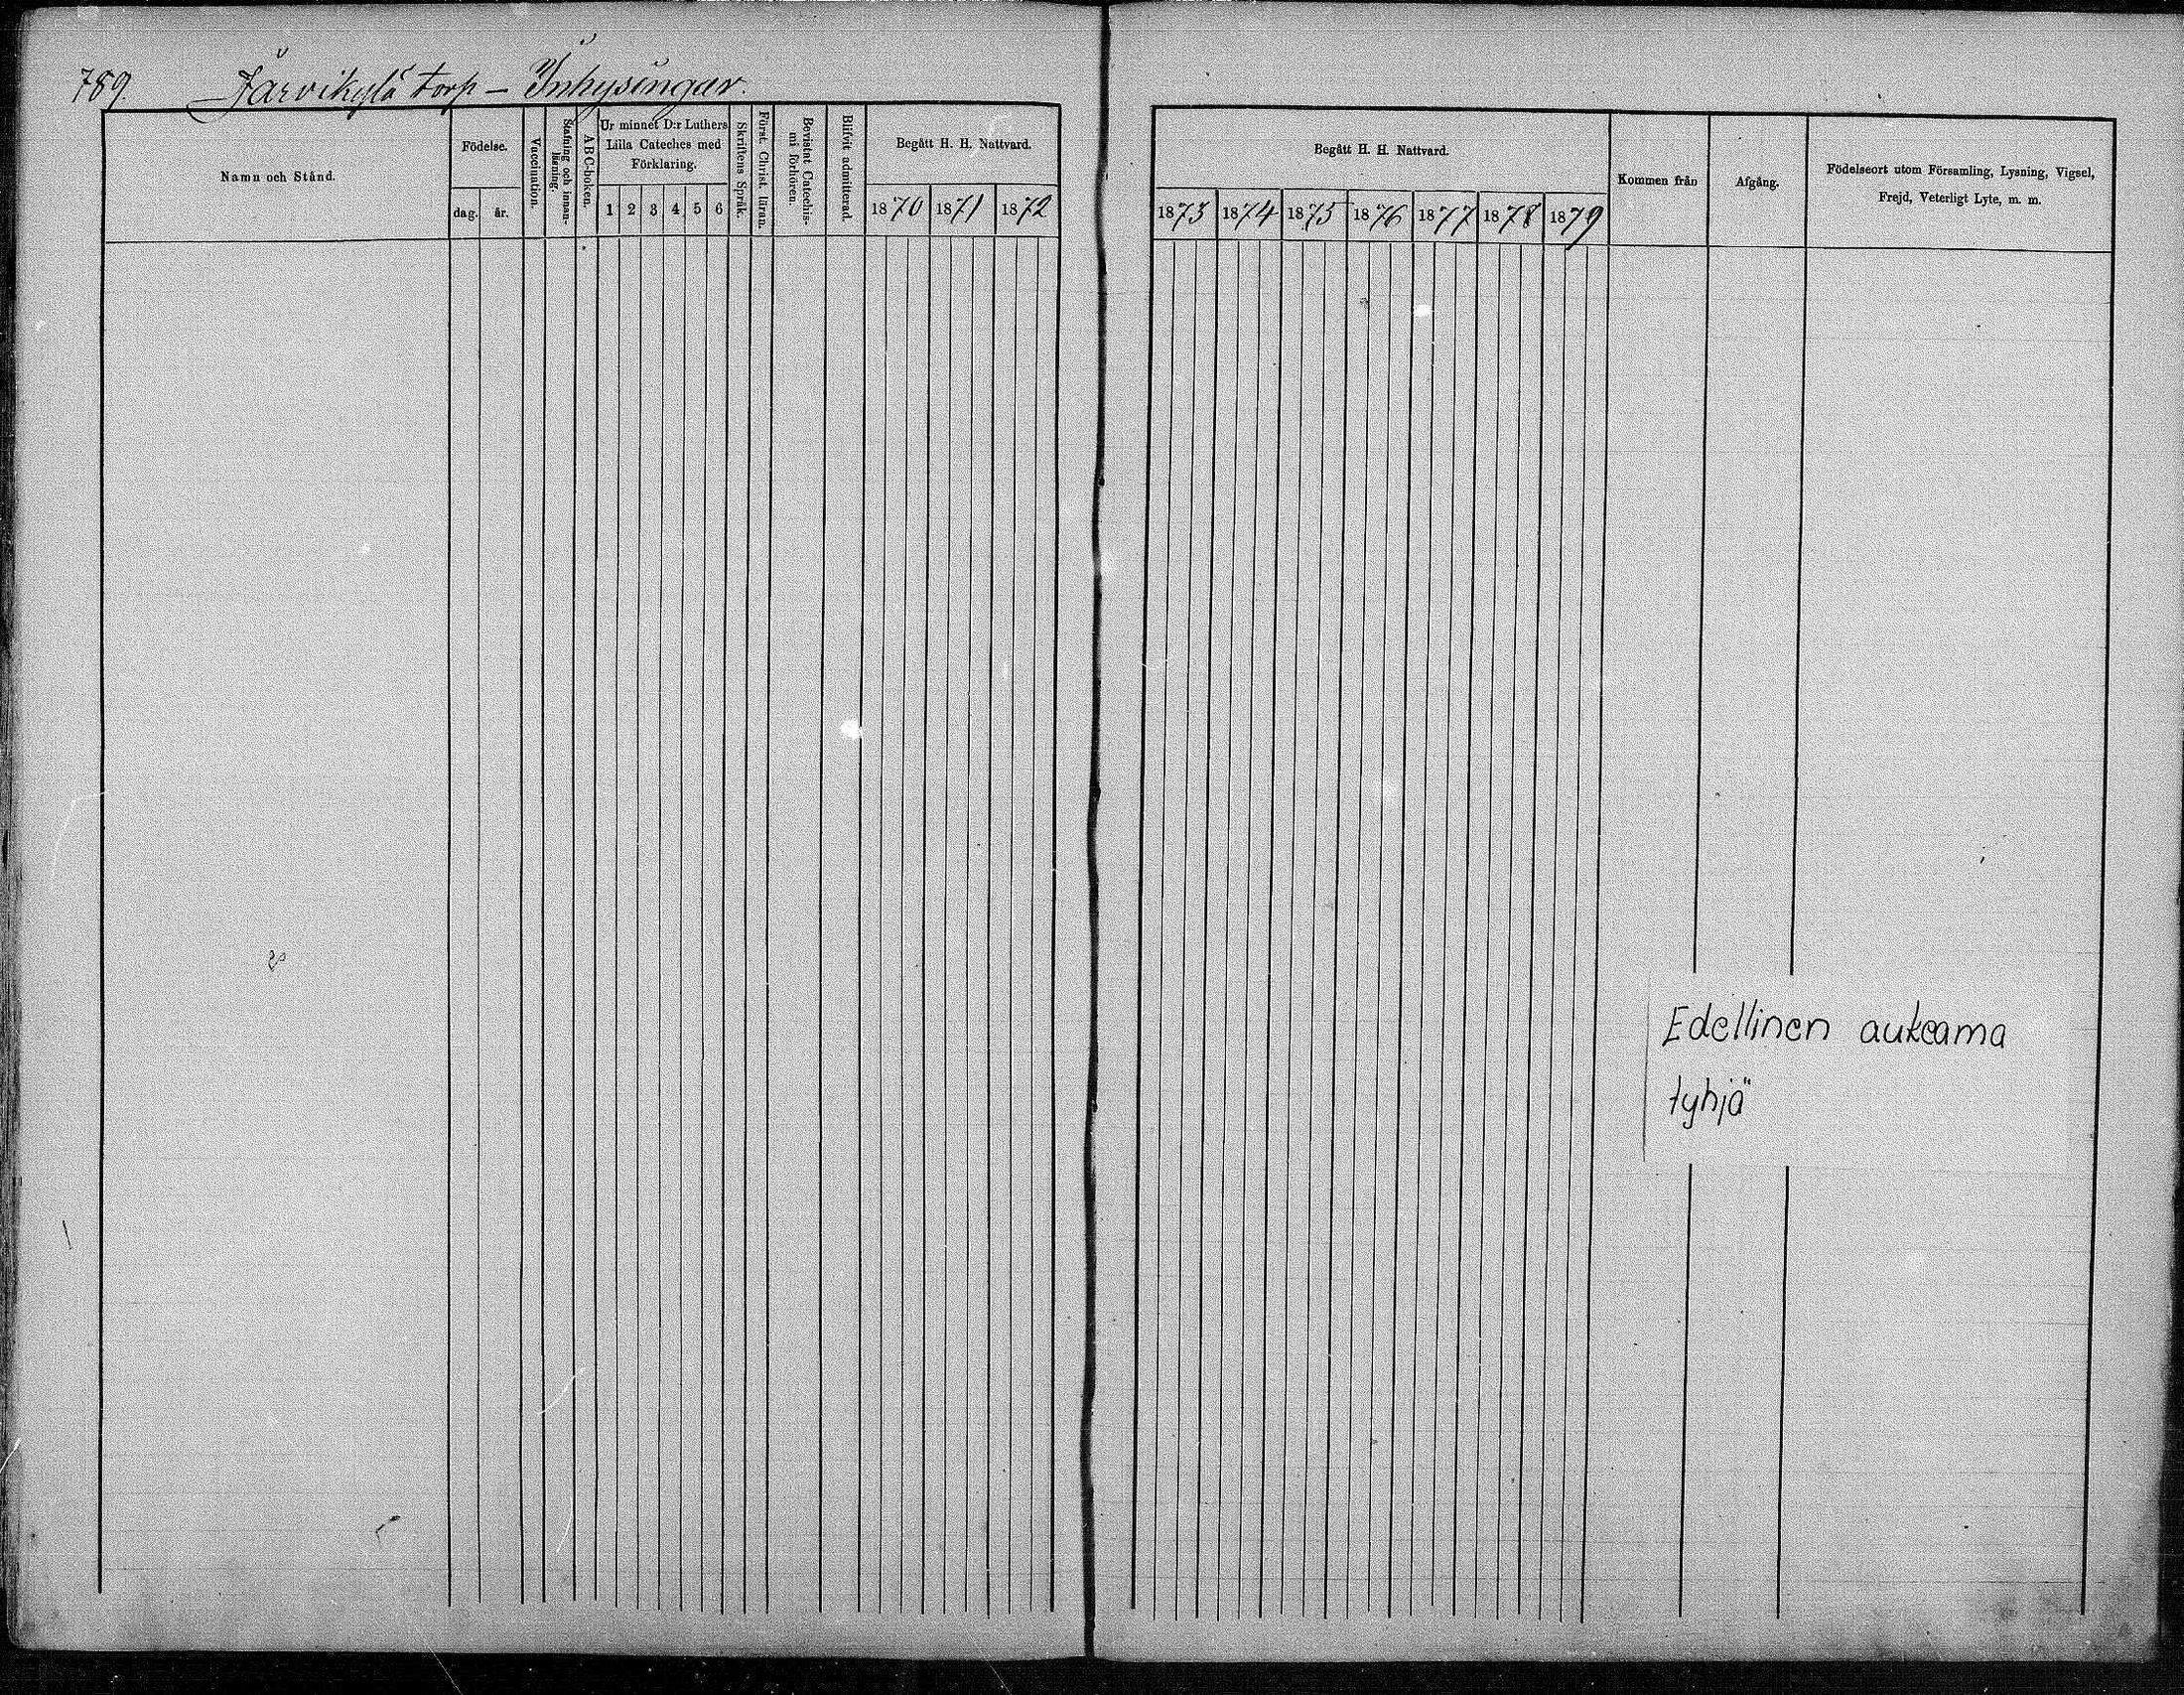 789. Järvikylä torp – Inhysingar.
Namn och Stånd.
Födelse.
dag. år.
Vaccination.
Stafning och innan-
läsning.
ABC-boken.
Ur minnet D:r Luthers
Lilla Cateches med
Förklaring.
1 2 3 4 5 6
Skriftens Språk.
Först. Christ. läran.
Bevistat Catechis-
mi förhören.
Blifvit admitterad.
Begått H. H. Nattvard.
1870 1871 1872
Begått H. H. Nattvard.
1873 1874 1875 1876 1877 1878 1879
Kommen från
Afgång.
Födelseort utom Församling, Lysning, Vigsel,
Frejd, Veterligt Lyte, m. m.
Edellinen aukeama
tyhjä